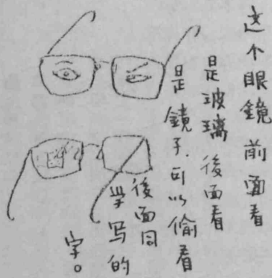 这个眼鏡前面看
是玻璃後面看
是鏡子.可以偷看
後面同
学写的
字。